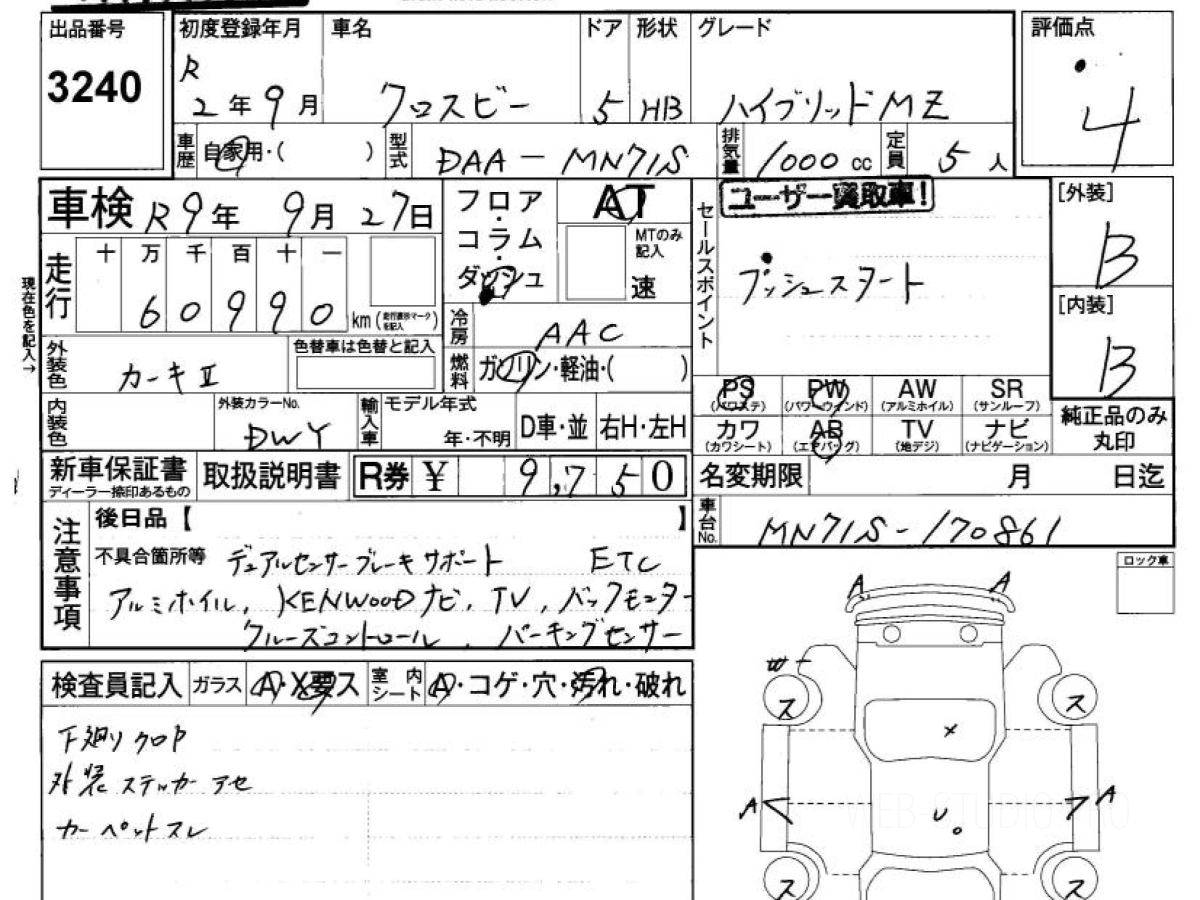 出品番号 初度登録年月 車名 ドア 形状 グレード 評価点
3240 R 2年 9月 クロスビー 5 HB ハイブリッドMZ 4
車歴 自家用・( ) 型式 DAA-MN71S 排気量 1000 cc 定員 5人
車検 R9年 9月 27日 フロア・コラム・ダッシュ AT セールスポイント ユーザー買取車! [外装]
MTのみ記入 B
走行 十 万 千 百 十 一 速 プッシュスタート [内装]
6 0 9 9 0 km (走行表示マークを記入) B
現在色を記入→
冷房 AAC
外装色 カーキⅡ 色替車は色替と記入 燃料 ガソリン・軽油・( )
PS (パワステ) PW (パワーウインド) AW (アルミホイル) SR (サンルーフ) 純正品のみ丸印
内装色 外装カラーNo. DWY 輸入車 モデル年式 年・不明 D車・並 右H・左H
カワ (カワシート) AB (エアバッグ) TV (地デジ) ナビ (ナビゲーション)
新車保証書 ディーラー捺印あるもの 取扱説明書 R券 ¥ 9,750 名変期限 月 日迄
車台No. MN71S-170861
注意事項 後日品【 】
不具合箇所等 デュアルセンサーブレーキサポート ETC
アルミホイル, KENWOODナビ, TV, バックモニター
クルーズコントロール, パーキングセンサー
ロック車
A A
検査員記入 ガラス A・X要ス 室内シート A・コゲ・穴・汚れ・破れ
下廻りクロP
外装ステッカーアセ
カーペットスレ
ス ス
×
A A
WEB STUDIO PRO
U
ス ス